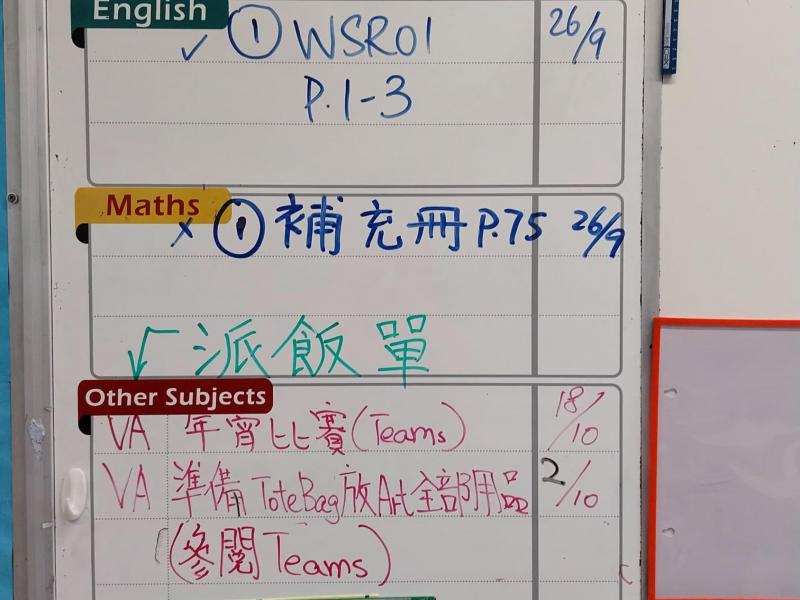 English
✓ ① WSR01 26/9
P.1-3
Maths
x ① 補充冊 P.75 26/9
√ 派飯單
Other Subjects
VA 年宵比賽(Teams) 18/10
VA 準備 ToteBag放Art全部用品 2/10
(參閱Teams)